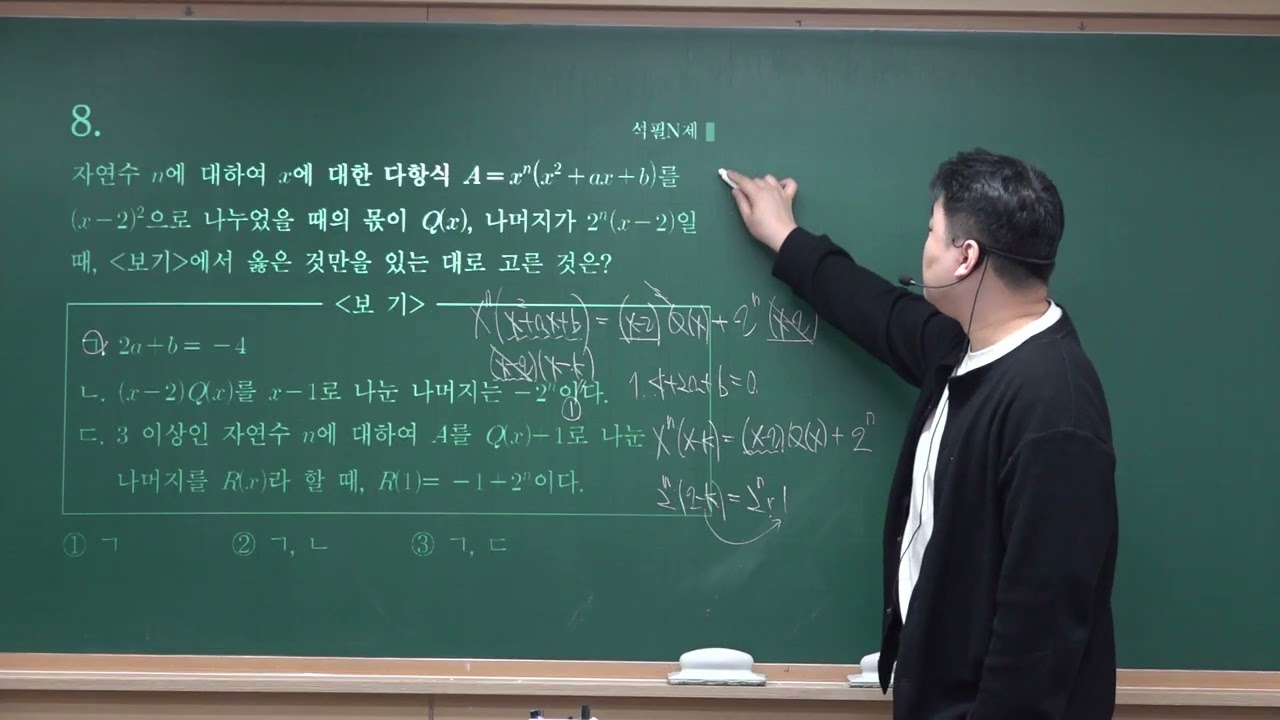 8.
석필N제
자연수 n에 대하여 x에 대한 다항식 A=xⁿ(x²+ax+b)를
(x-2)²으로 나누었을 때의 몫이 Q(x), 나머지가 2ⁿ(x-2)일
때, <보기>에서 옳은 것만을 있는 대로 고른 것은?
<보 기>
xⁿ(x²+ax+b)=(x-2)²Q(x)+2ⁿ(x-2)
ㄱ. 2a+b=-4
(x-2)(x-k)
1. 4+2a+b=0.
ㄴ. (x-2)Q(x)를 x-1로 나눈 나머지는 -2ⁿ이다.
①
ㄷ. 3 이상인 자연수 n에 대하여 A를 Q(x)-1로 나눈
xⁿ(x-k)=(x-2)Q(x)+2ⁿ
나머지를 R(x)라 할 때, R(1)=-1+2ⁿ이다.
2ⁿ(2-k)=2ⁿ.1
① ㄱ ② ㄱ, ㄴ ③ ㄱ, ㄷ